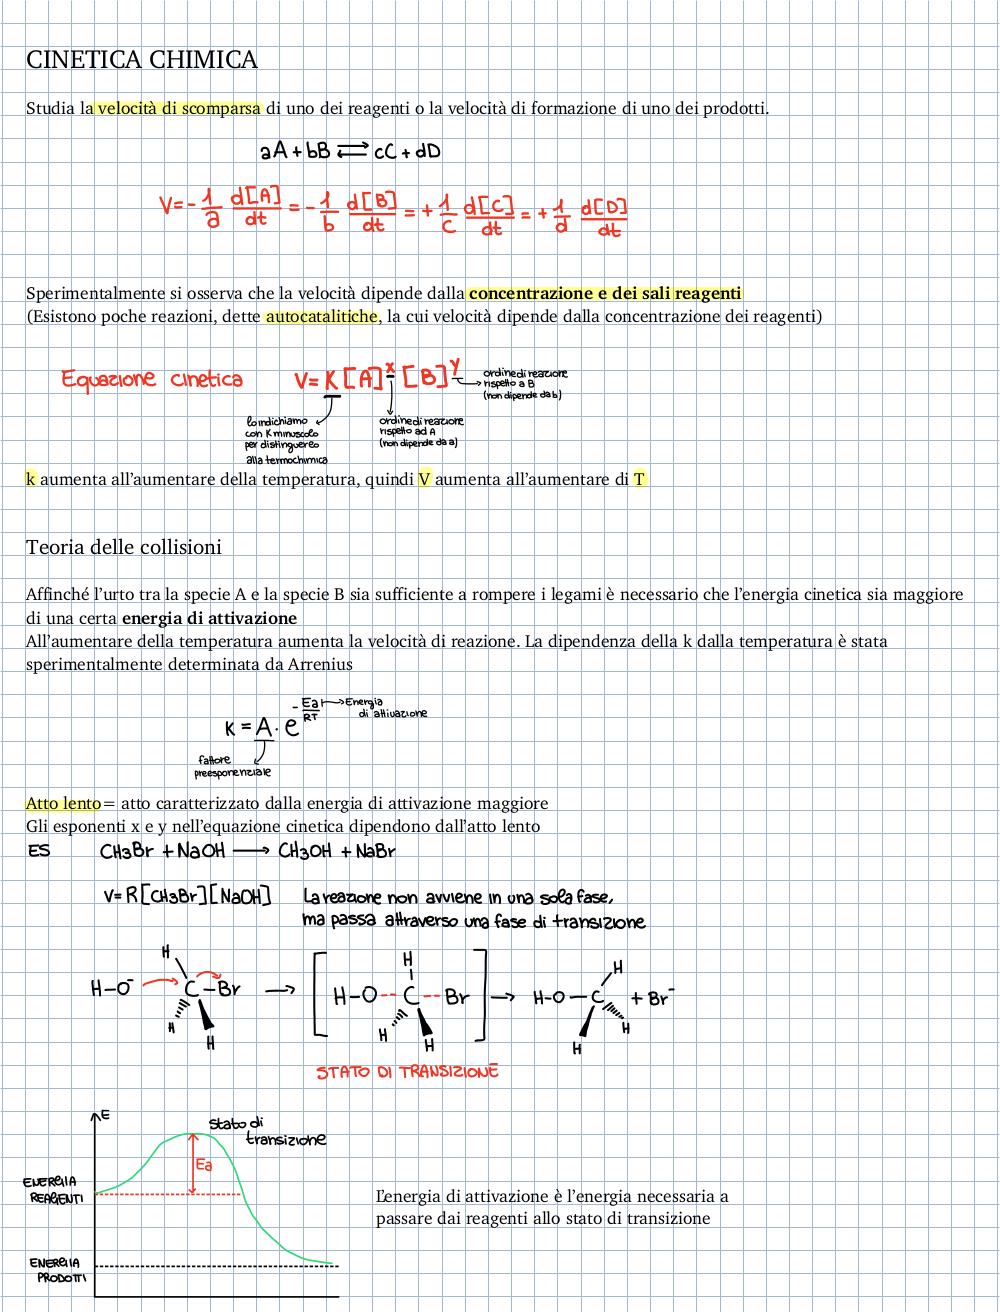 CINETICA CHIMICA
Studia la velocità di scomparsa di uno dei reagenti o la velocità di formazione di uno dei prodotti.
aA + bB ⇌ cC + dD
V = - 1/a d[A]/dt = - 1/b d[B]/dt = + 1/c d[C]/dt = + 1/d d[D]/dt
Sperimentalmente si osserva che la velocità dipende dalla concentrazione e dei sali reagenti
(Esistono poche reazioni, dette autocatalitiche, la cui velocità dipende dalla concentrazione dei reagenti)
Equazione cinetica V= K[A]^x [B]^y
ordine di reazione
rispetto a B
(non dipende da b)
lo indichiamo
con K minuscolo
per distinguereo
alla termochimica
ordine di reazione
rispetto ad A
(non dipende da a)
k aumenta all’aumentare della temperatura, quindi V aumenta all’aumentare di T
Teoria delle collisioni
Affinché l’urto tra la specie A e la specie B sia sufficiente a rompere i legami è necessario che l’energia cinetica sia maggiore
di una certa energia di attivazione
All’aumentare della temperatura aumenta la velocità di reazione. La dipendenza della k dalla temperatura è stata
sperimentalmente determinata da Arrenius
K = A · e^(-Ea/RT)
Energia
di attivazione
fattore
preesponenziale
Atto lento= atto caratterizzato dalla energia di attivazione maggiore
Gli esponenti x e y nell’equazione cinetica dipendono dall’atto lento
ES CH3Br + NaOH → CH3OH + NaBr
V= R[CH3Br][NaOH] La reazione non avviene in una sola fase,
ma passa attraverso una fase di transizione
H
H–O⁻ C–Br →
H
H
[ H
H–O--C--Br ] →
H
H
H
H–O–C + Br⁻
H
H
STATO DI TRANSIZIONE
E
stato di
transizione
Ea
ENERGIA
REAGENTI
L’energia di attivazione è l’energia necessaria a
passare dai reagenti allo stato di transizione
ENERGIA
PRODOTTI